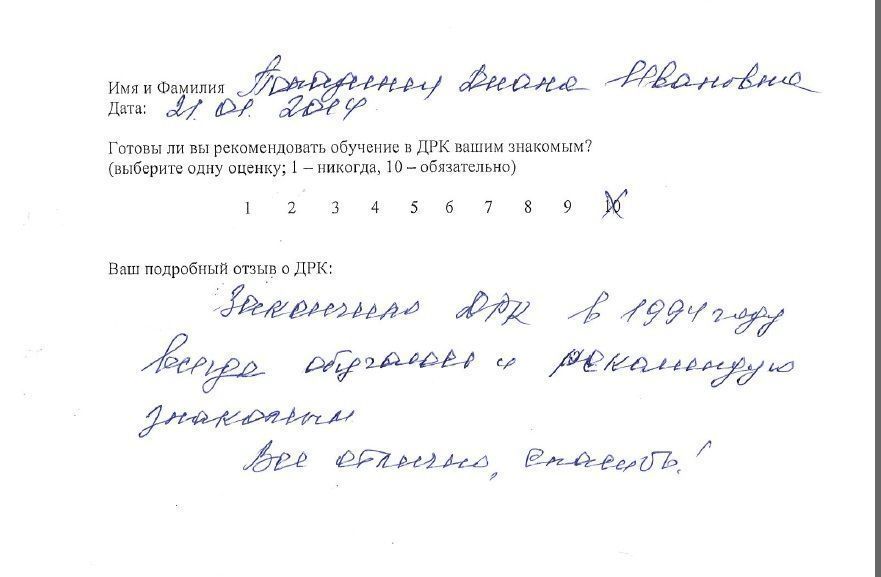 Имя и Фамилия Диана Ивановна
Дата: 21.01.2014
Готовы ли вы рекомендовать обучение в ДРК вашим знакомым?
(выберите одну оценку; 1 – никогда, 10 – обязательно)
1 2 3 4 5 6 7 8 9 10
Ваш подробный отзыв о ДРК:
Закончила ДРК в 1994 году
всегда обучалась и рекомендую
знакомым
Все отлично, спасибо!